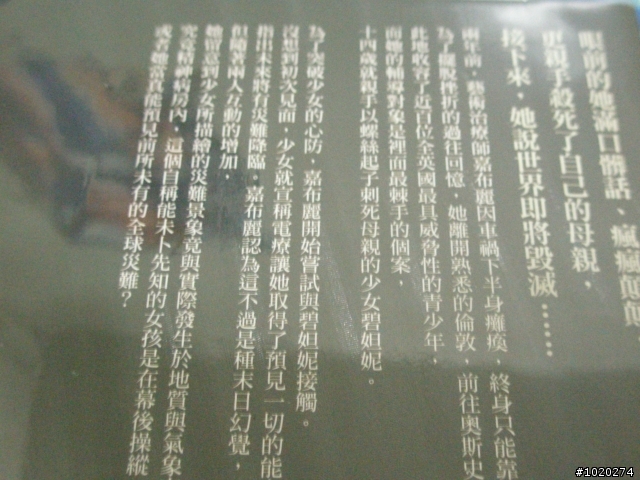 眼前的她滿口髒話、瘋瘋顛顛
更親手殺死了自己的母親，
接下來，她說世界即將毀滅……
兩年前，藝術治療師嘉布麗因車禍下半身癱瘓，終身只能靠
為了擺脫挫折的過往回憶，她離開熟悉的倫敦，前往奧斯史
此地收容了近百位全英國最具威脅性的青少年，
而她的輔導對象是裡面最棘手的個案，
十四歲就親手以螺絲起子刺死母親的少女碧妲妮。
為了突破少女的心防，嘉布麗開始嘗試與碧妲妮接觸。
沒想到初次見面，少女就宣稱電療讓她取得了預見一切的能
指出未來將有災難降臨。嘉布麗認為這不過是種末日幻覺，
但隨著兩人互動的增加，
她留意到少女所描繪的災難景象竟與實際發生於地質與氣象
究竟精神病房內，這個自稱能未卜先知的女孩是在幕後操縱
或者她當真能預見前所未有的全球災難？
#1020274